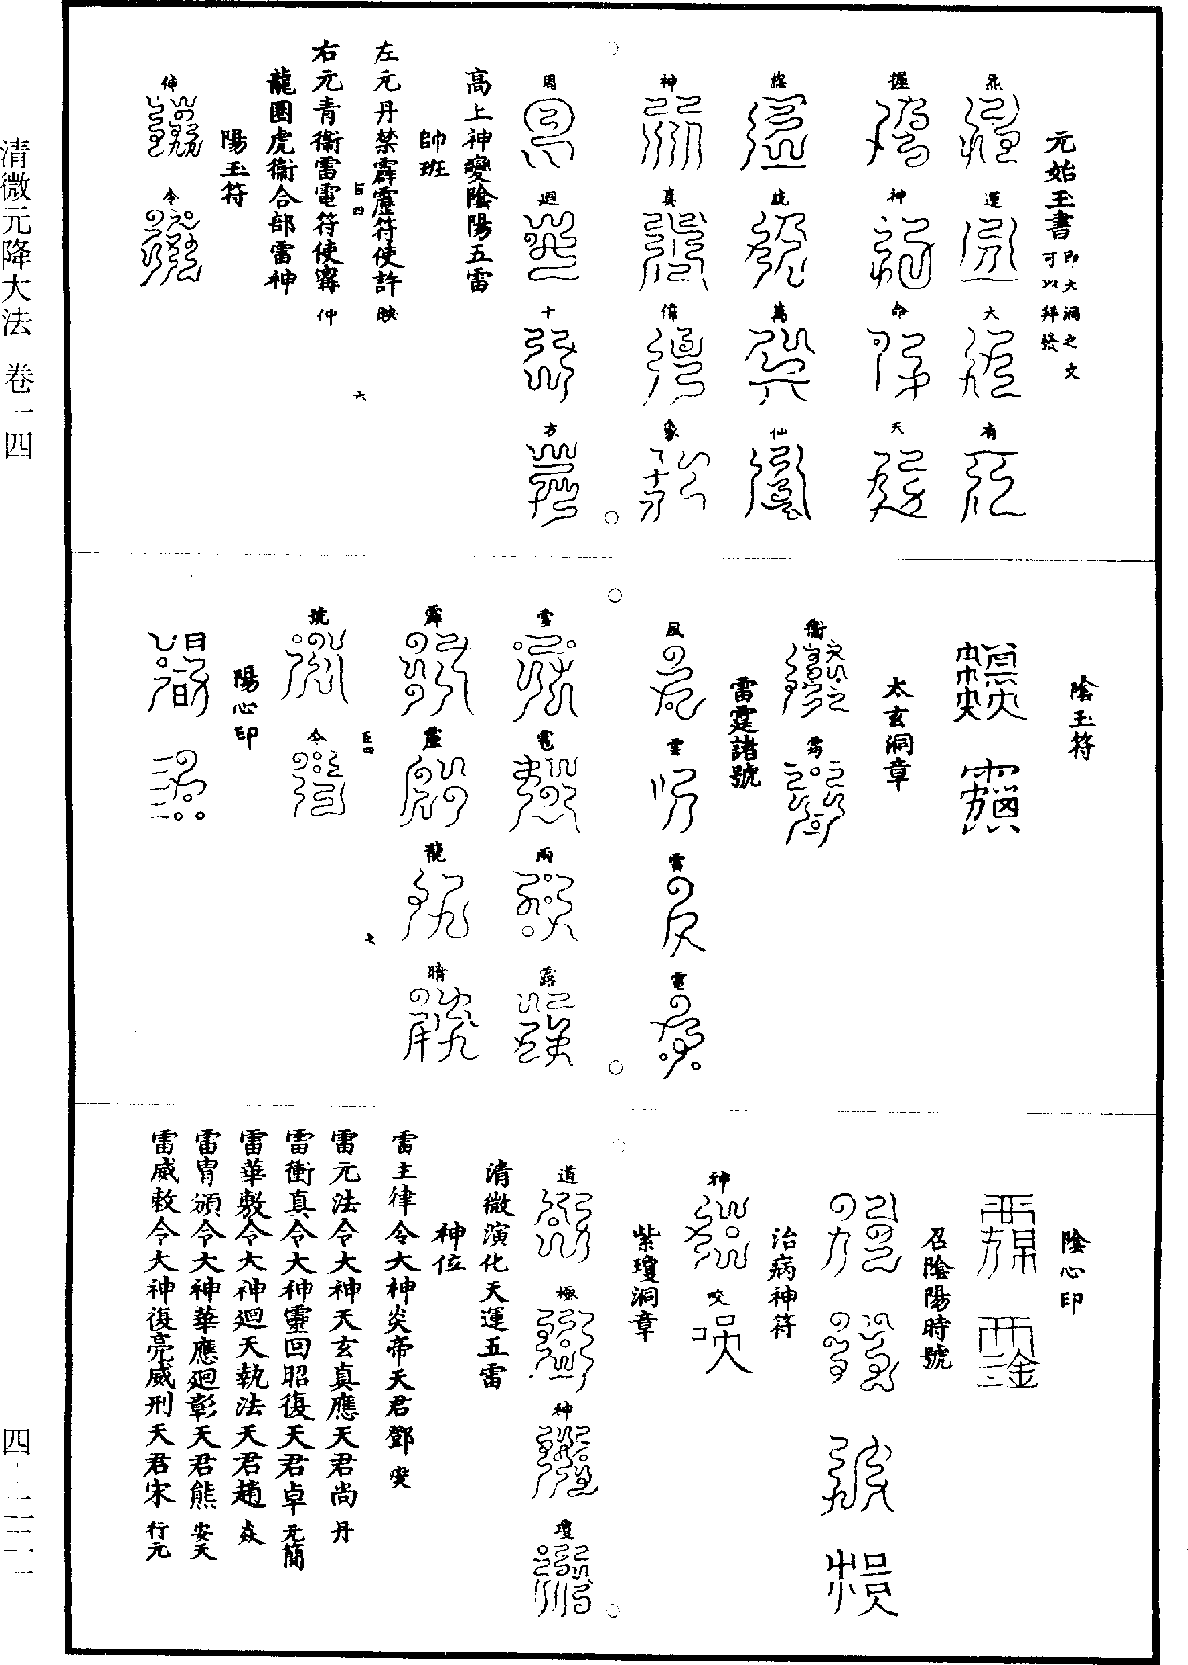 清微元降大法 卷一四
元始玉書 即大洞之文可以拜發
炁 運 大 有
握 神 命 天
總 統 萬 仙
神 真 備 象
周 迴 十 方
高上神變陰陽五雷
帥班
左元丹禁霹靂符使許 映
右元青衛雷電符使甯 仲
龍圖虎衛合部雷神
陽玉符
伸 令
陰玉符
太玄洞章
衛
雷霆諸號
風 雲 雷 電
雪 雹 雨 露
霹 靂 龍 晴
號 令
陽心印
陰心印
召陰陽時號
治病神符
神 咬
紫瓊洞章
道 極 神 瓊
清微演化天運五雷
神位
雷主律令大神炎帝天君鄧 燮
雷元法令大神天玄真應天君尚 丹
雷衝真令大神靈回昭復天君卓 元簡
雷華敷令大神迴天執法天君趙 焱
雷胄頒令大神華應迴彰天君熊 安天
雷威敕令大神復亮威刑天君宋 行元
四-二二一